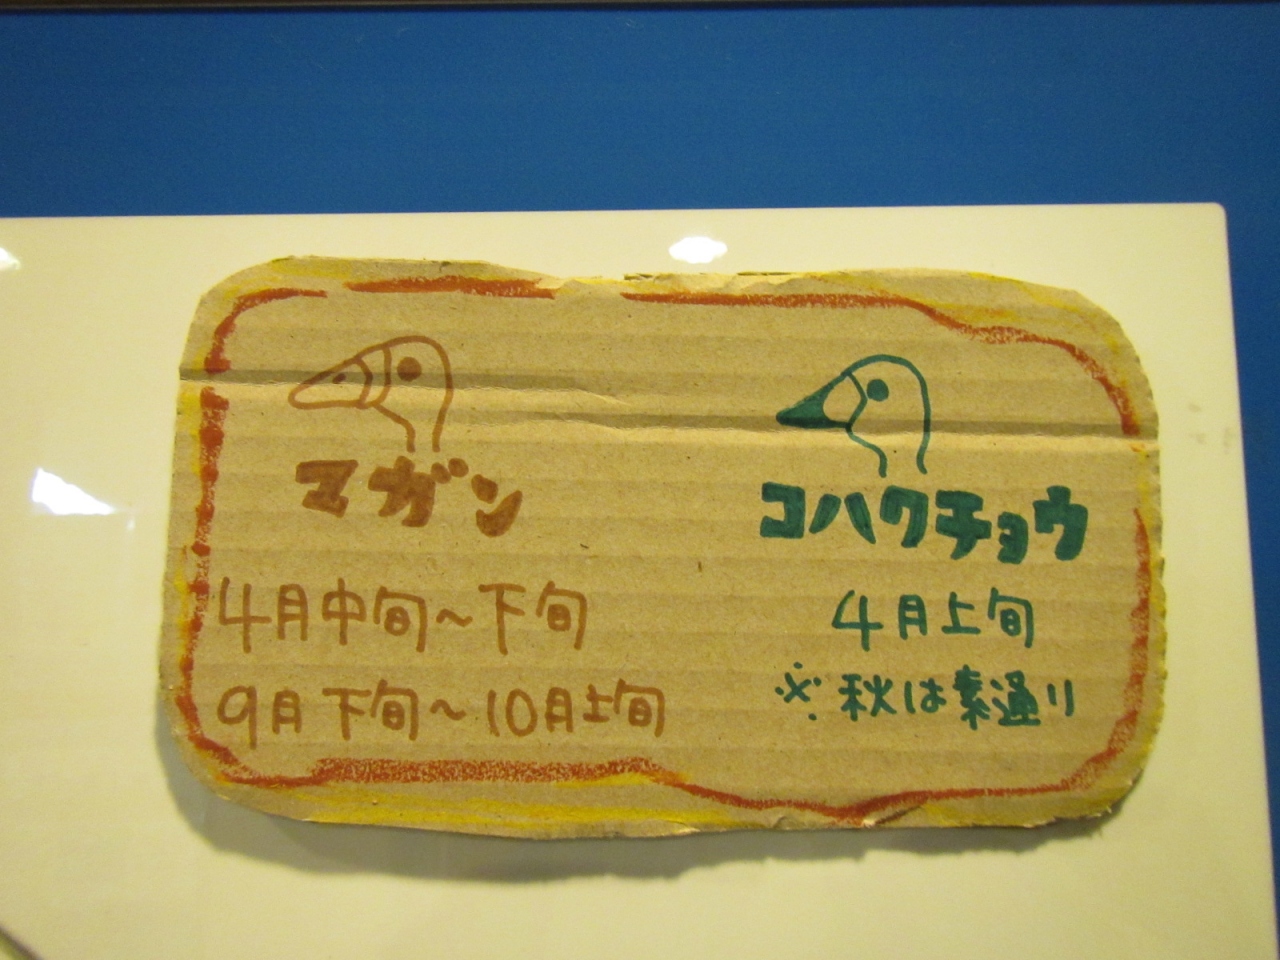 マガン
4月中旬～下旬
9月下旬～10月上旬
コハクチョウ
4月上旬
※秋は素通り